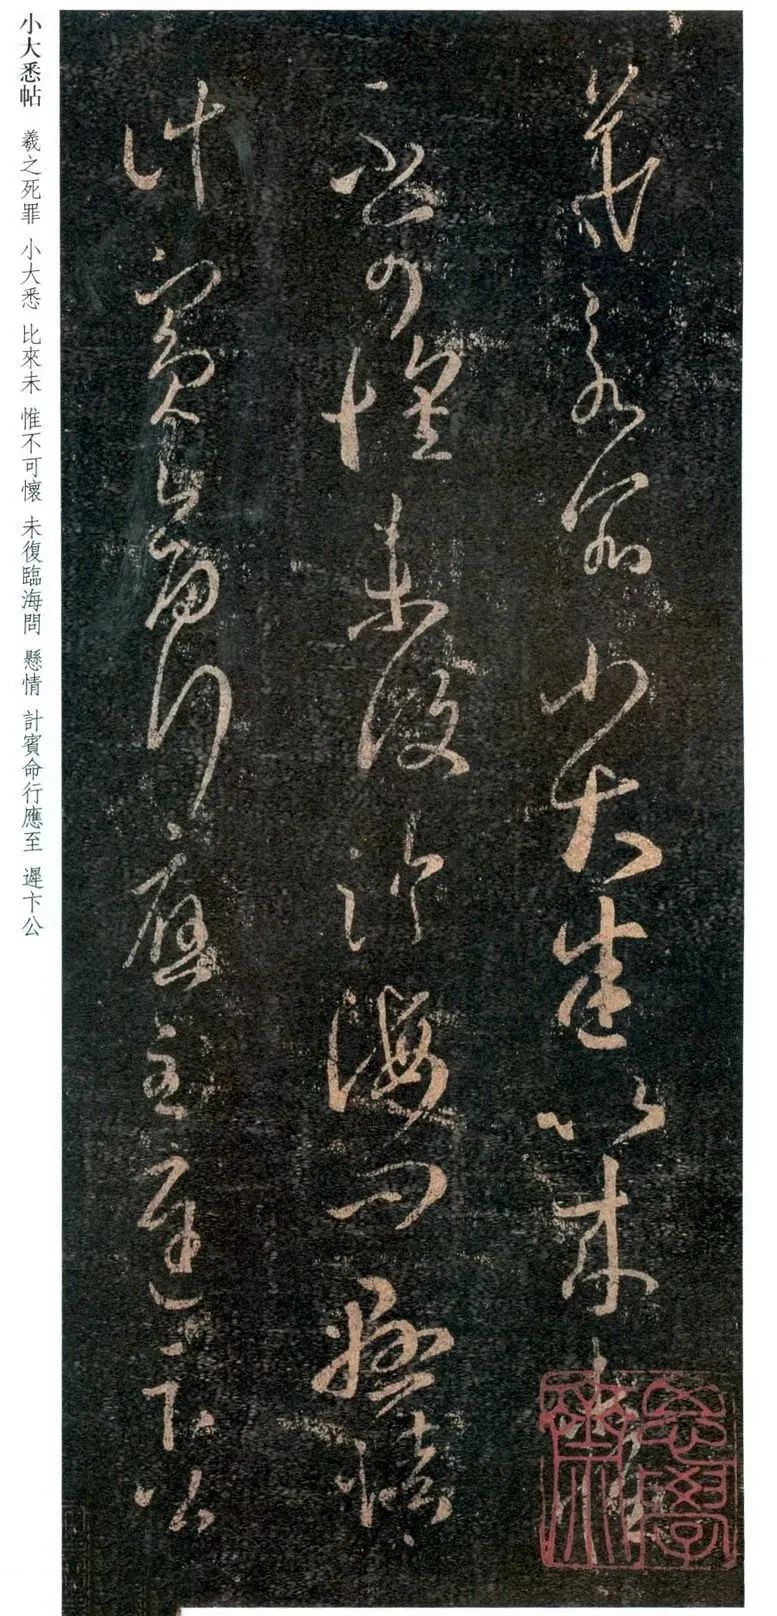 小大悉帖 羲之死罪 小大悉 比來未 惟不可懷 未復臨海問 懸情 計賓命行應至 遲卞公
羲之死罪小大悉比來
不可懷未復臨海問懸情
計賓命行應至遲卞公